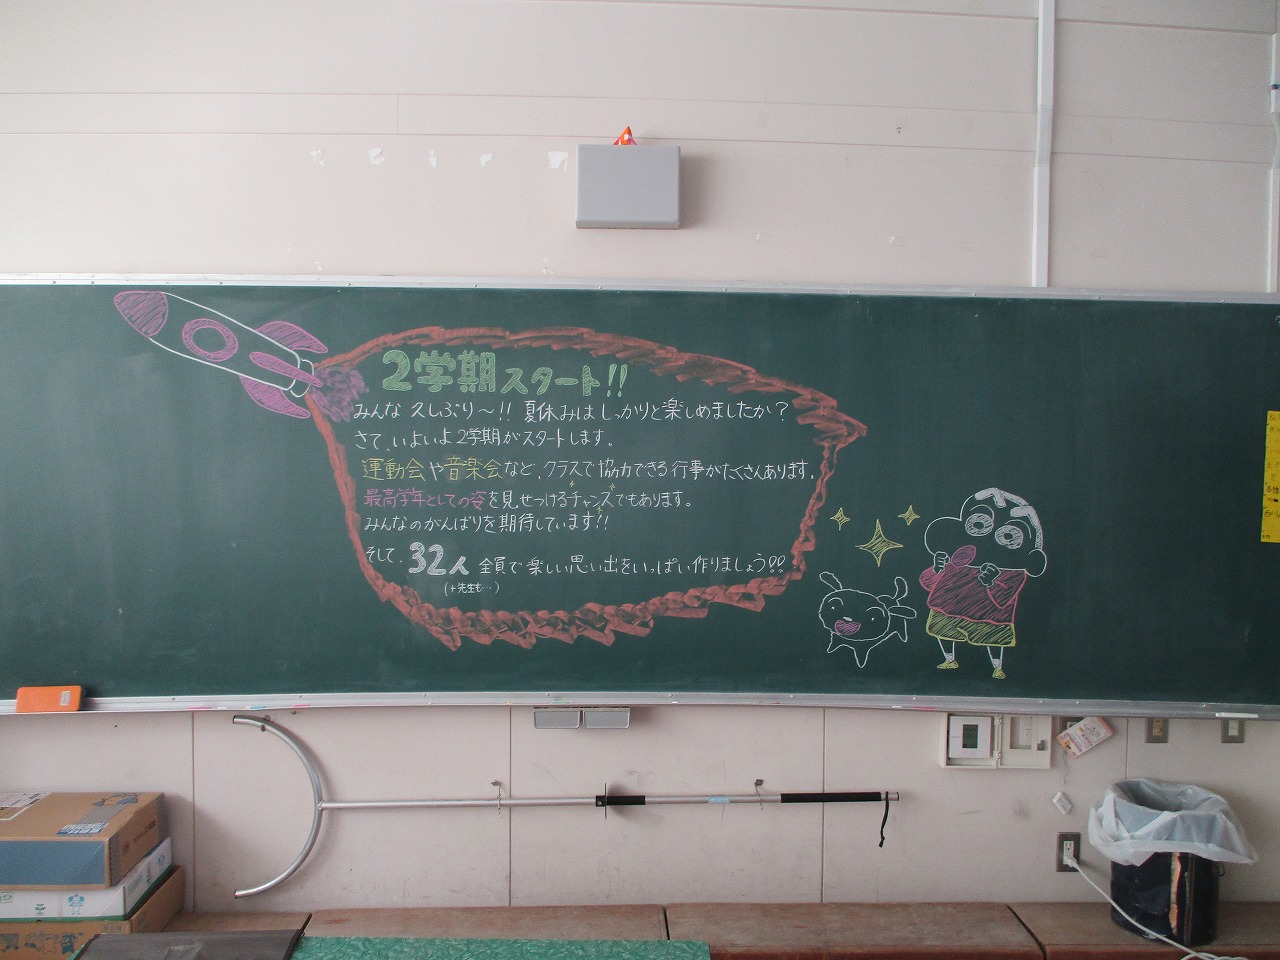 2学期スタート!!
みんな 久しぶり〜!! 夏休みはしっかりと楽しめましたか?
さて、いよいよ2学期がスタートします。
運動会や音楽会など、クラスで協力できる行事がたくさんあります。
最高学年としての姿を見せつけるチャンスでもあります。
みんなのがんばりを期待しています!!
そして、32人 全員で楽しい思い出をいっぱい作りましょう!!
(+先生も…)